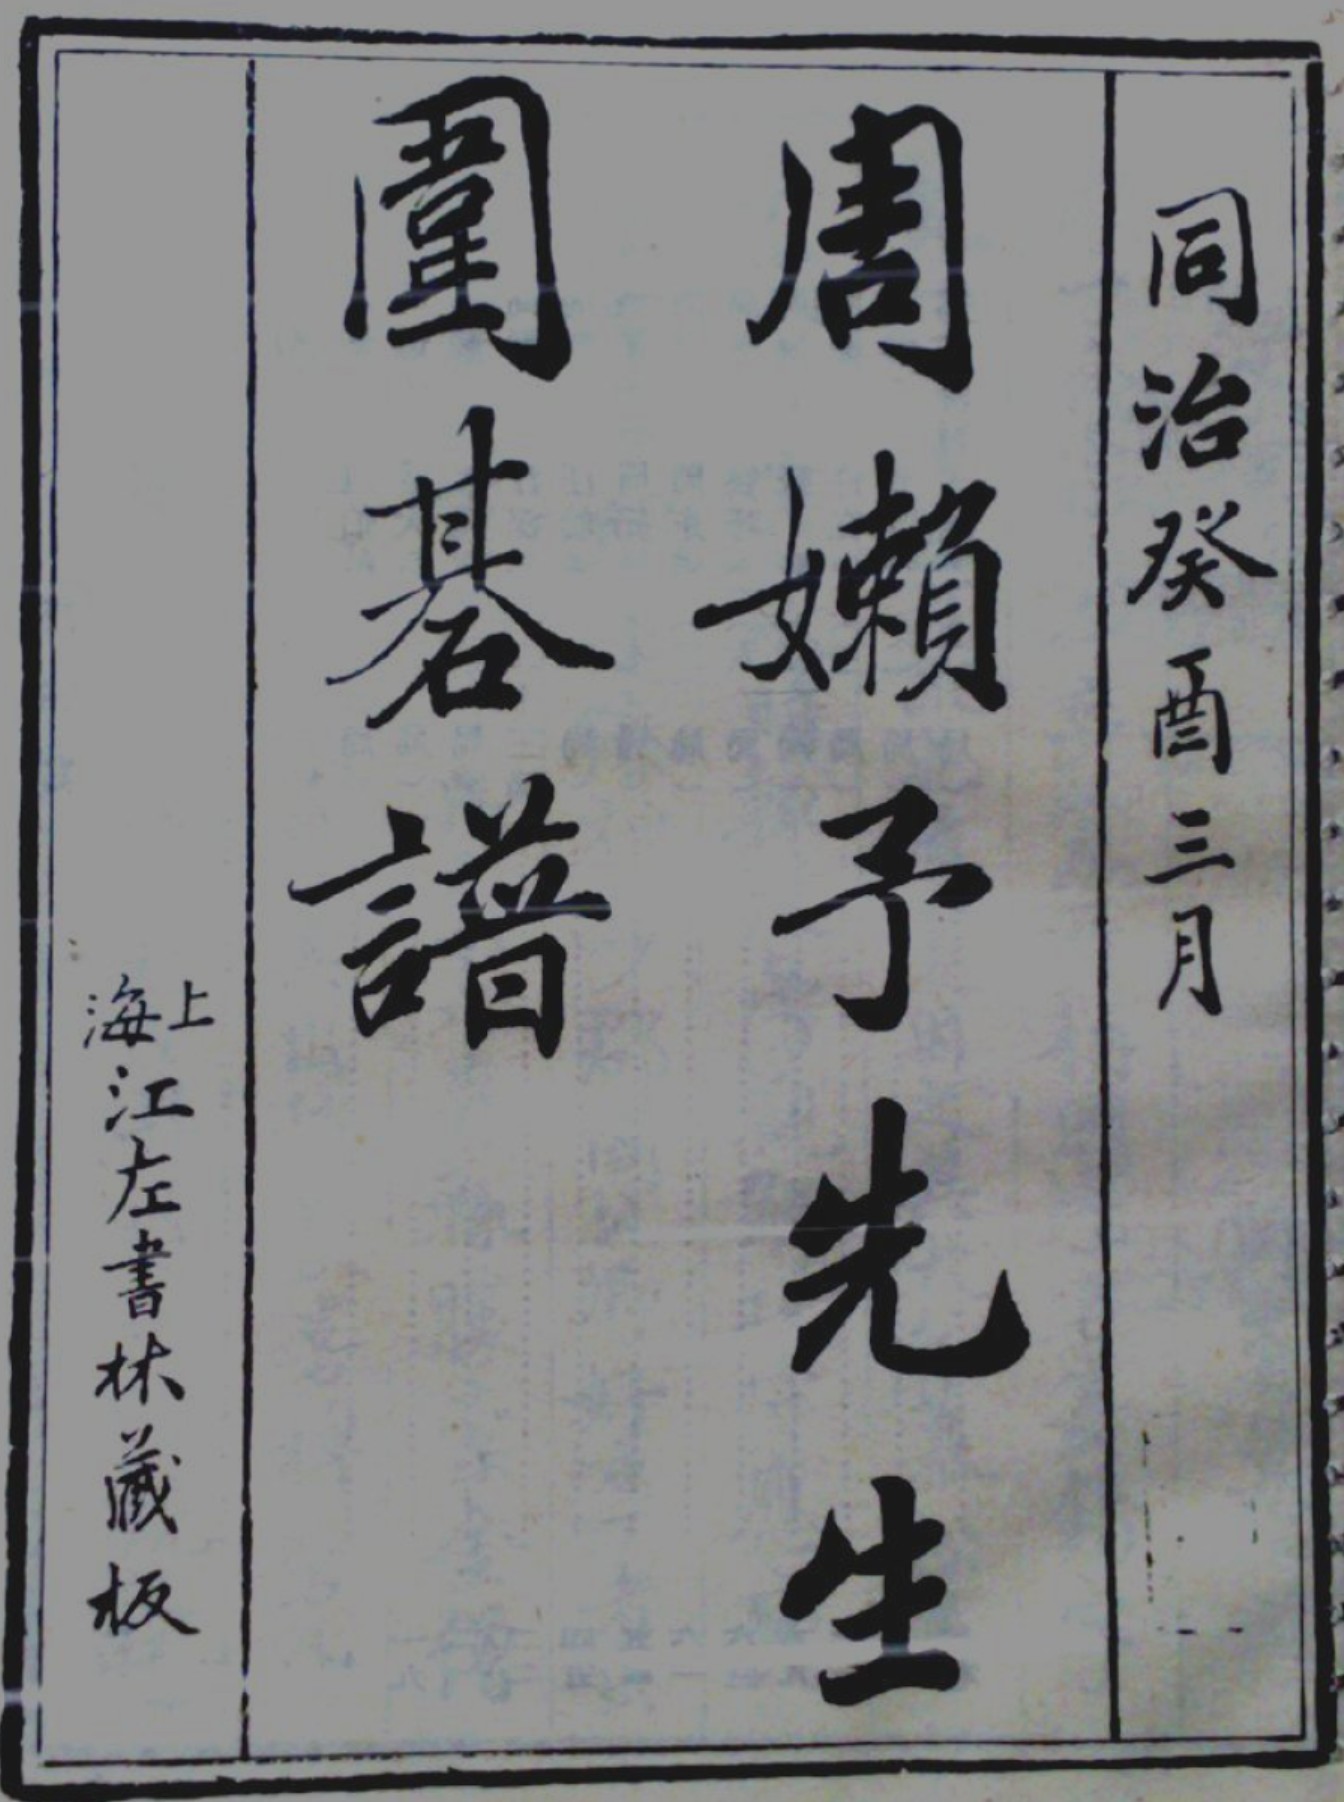 同治癸酉三月
周嬾予先生
圍碁譜
上海江左書林藏板